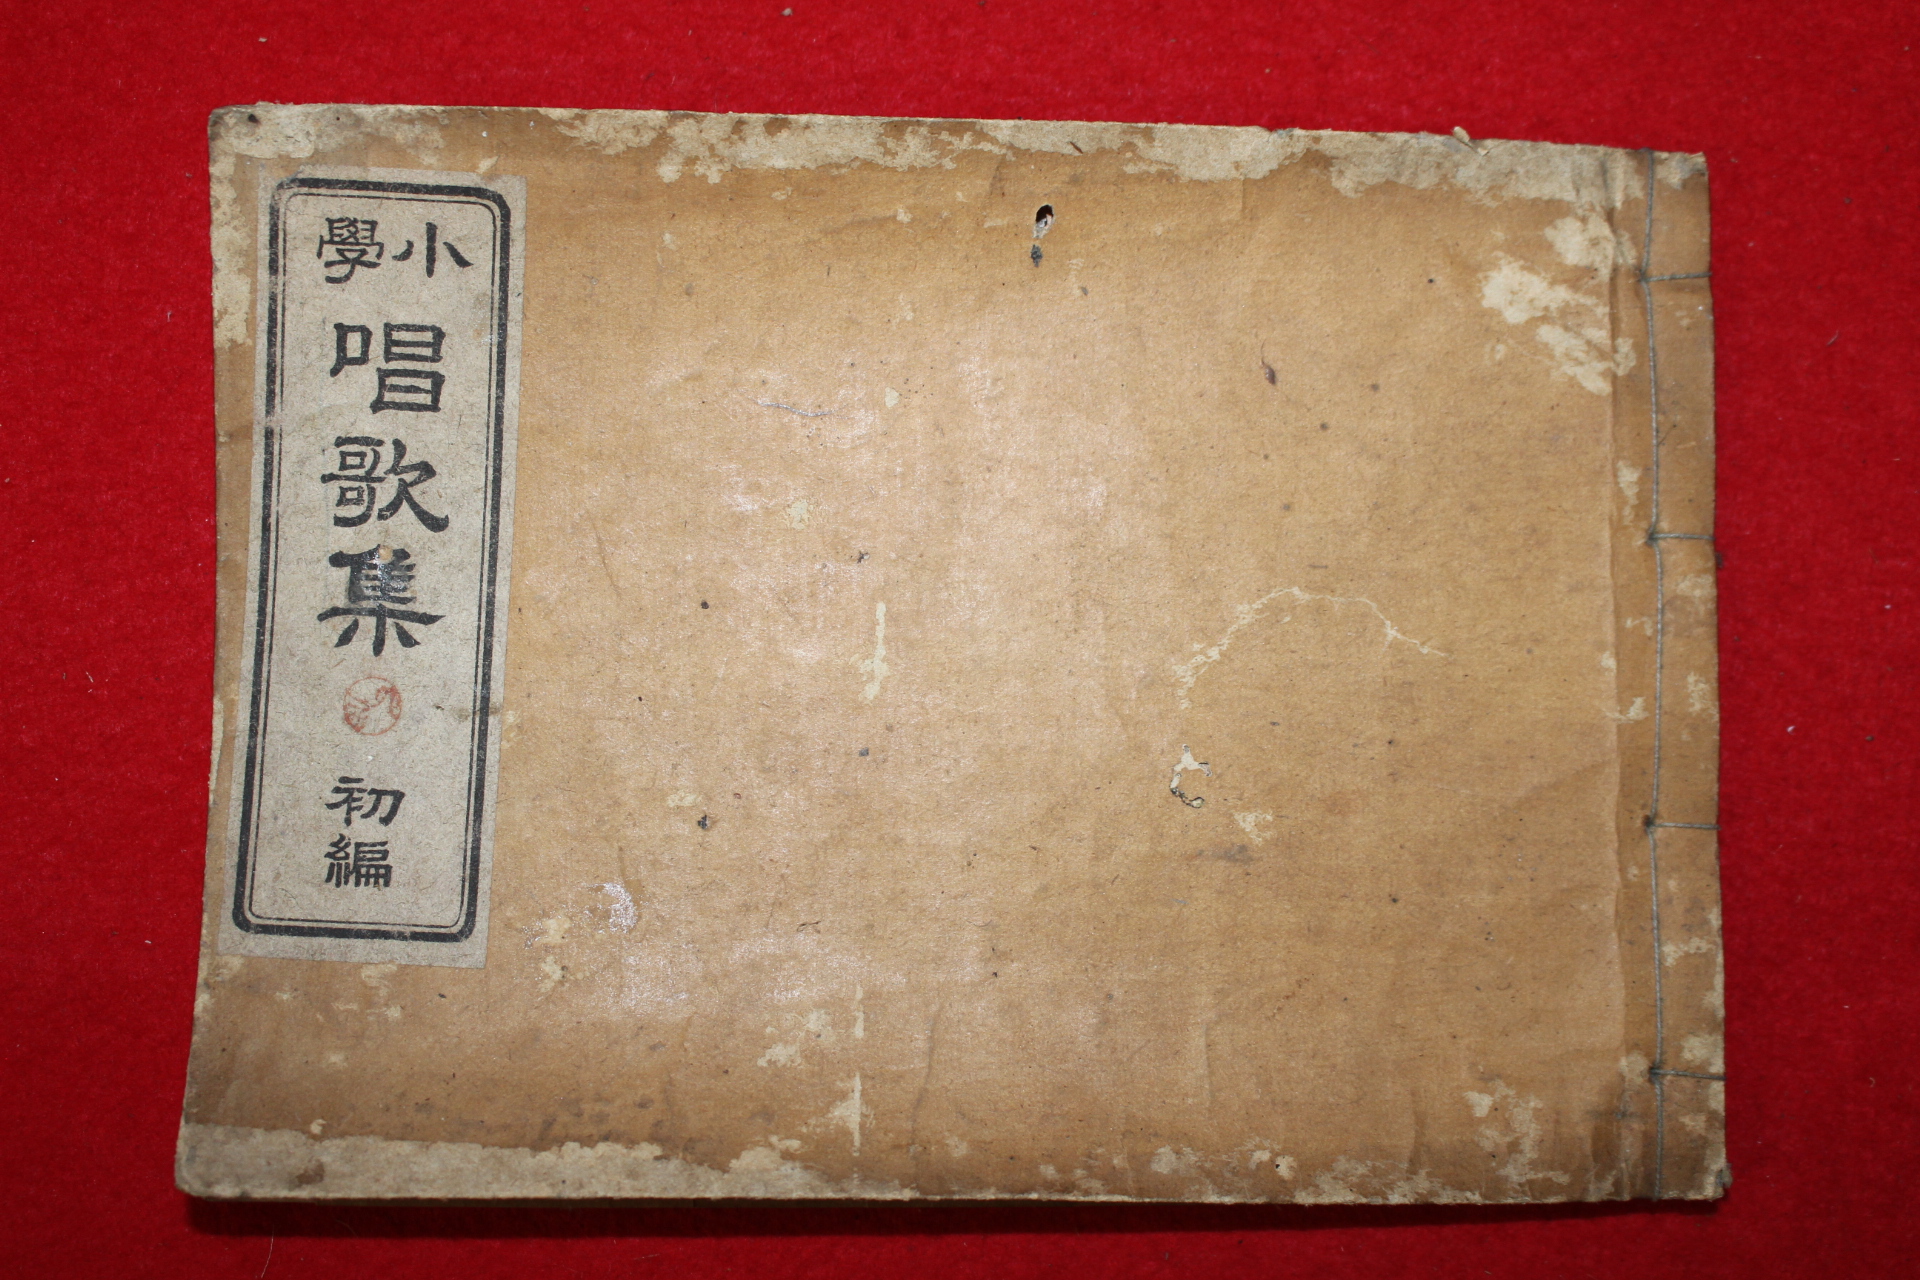 小學
唱歌集
初編